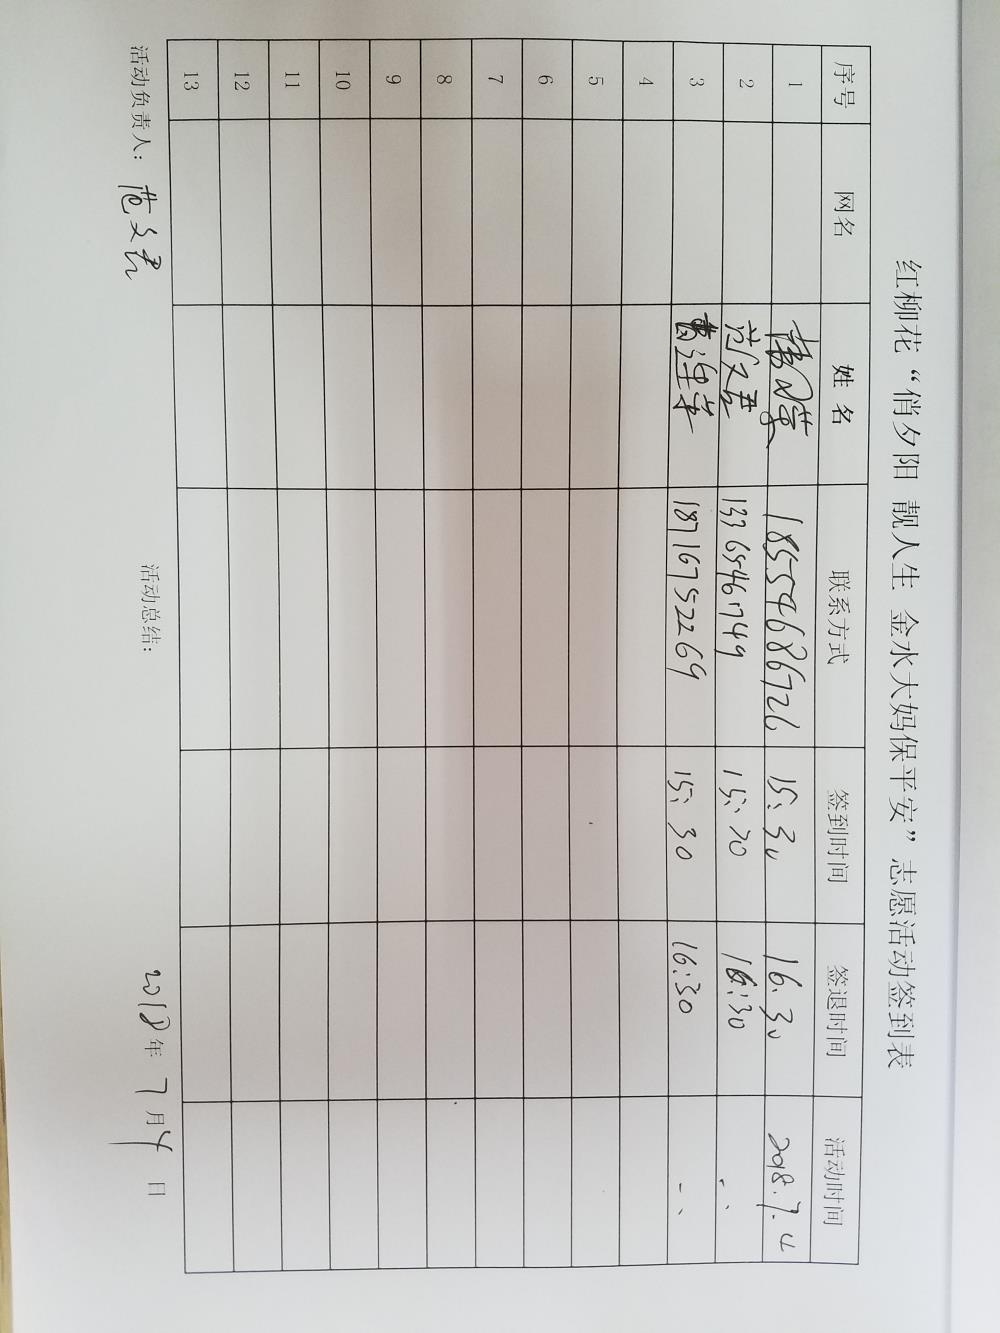 红柳花“俏夕阳 靓人生 金水大妈保平安”志愿活动签到表
序号 网名 姓名 联系方式 签到时间 签退时间 活动时间
1 18554686726 15:30 16:30 2018.7.4
2 范文君 13365461749 15:20 16:30 〃
3 18716752269 15:30 16:30 〃
4
5
6
7
8
9
10
11
12
13
活动负责人：范文君 活动总结： 2018年7月4日